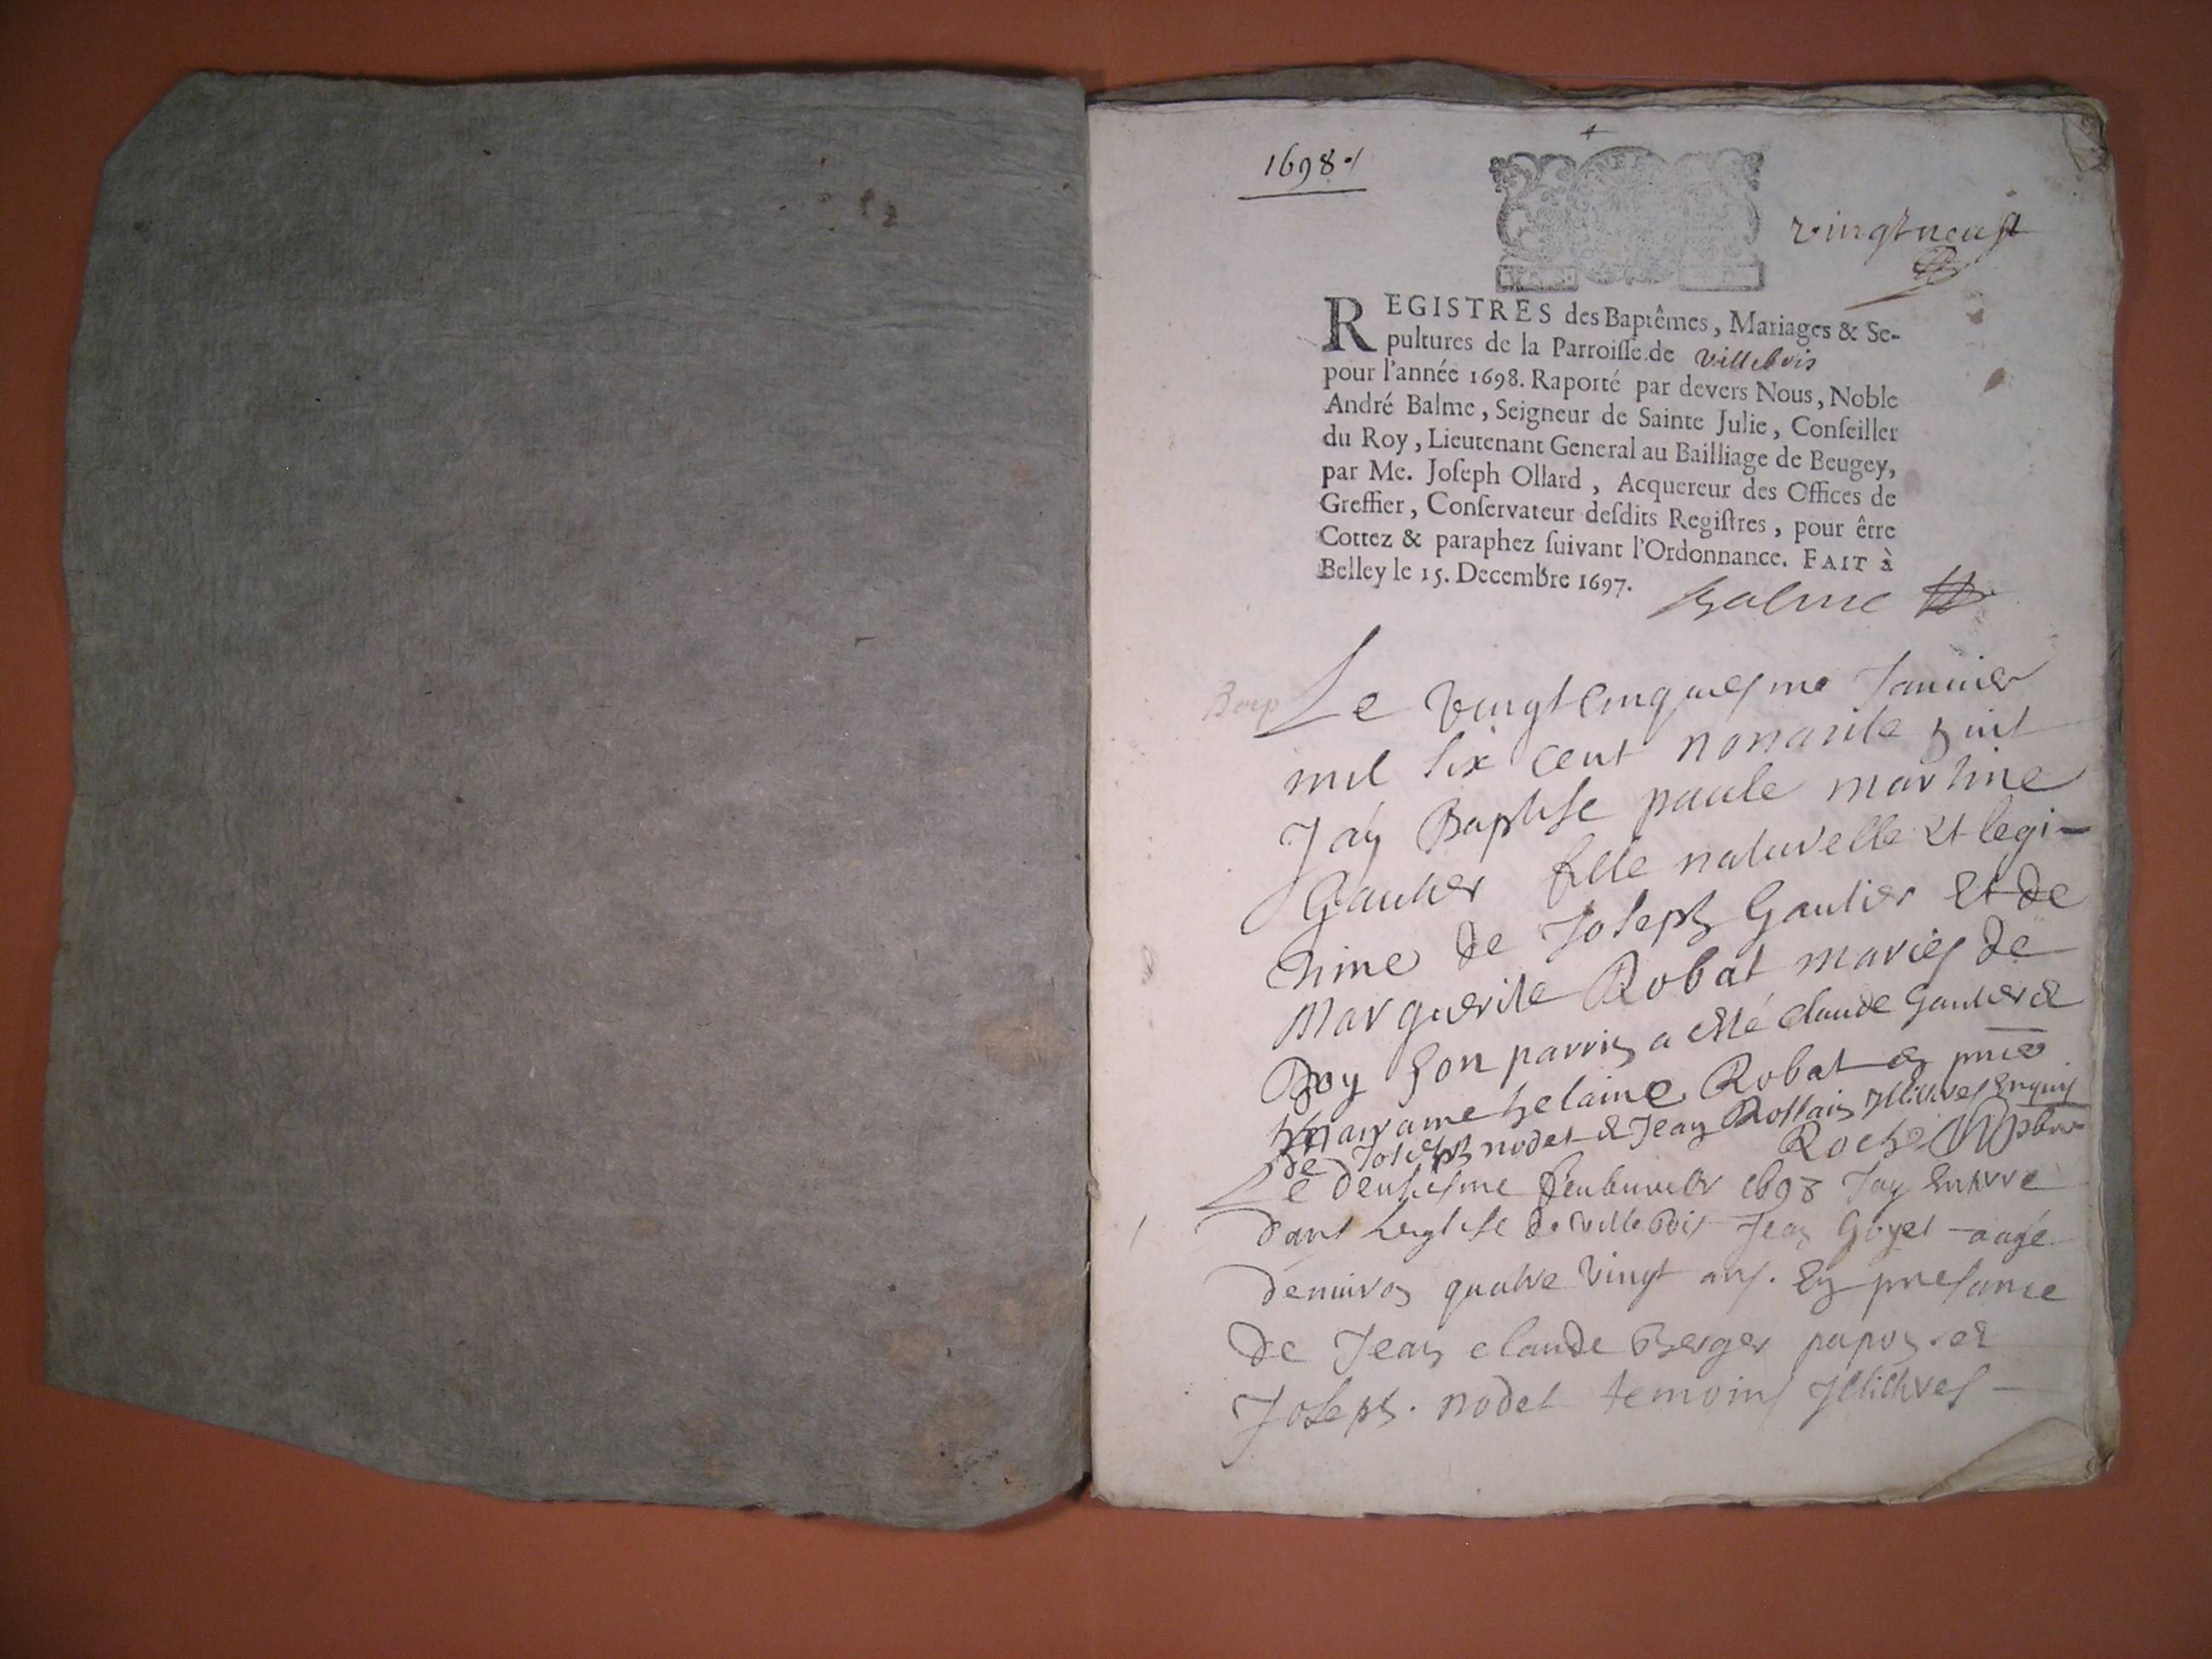 1698
vingt neuf
REGISTRES des Baptêmes, Mariages & Se-
pultures de la Parroisse de villebois
pour l'année 1698. Raporté par devers Nous, Noble
André Balme, Seigneur de Sainte Julie, Conseiller
du Roy, Lieutenant General au Bailliage de Beugey,
par Me. Joseph Ollard, Acquereur des Offices de
Greffier, Conservateur desdits Registres, pour être
Cottez & paraphez suivant l'Ordonnance. FAIT à
Belley le 15. Decembre 1697.
Balme
Bap
Le vingt cinquiesme Januier
mil six cent nonante huit
Jay Baptise paule martine
Gautier fille naturelle et legi-
time de Joseph Gautier et de
Marguerite Robat maries de
Boy son parrin a esté claude Gautier &
marrame helaine Robat en
de Joseph nodet & Jean Rostain Illitires enquis
Roche
Le deusiesme feuburier 1698 Jay enterré
dans leglise de villebois Jean Goyet aagé
denuiron quatre vingt ans. En presance
de Jean claude Berger papon et
Joseph nodet temoins Illitires